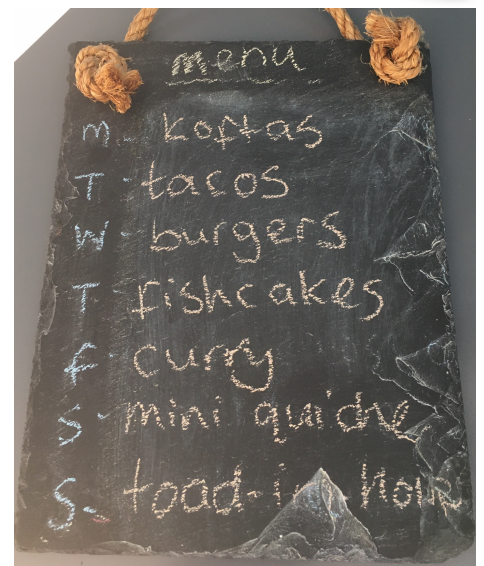 menu
m- koftas
T- tacos
W- burgers
T- fishcakes
f- curry
S- mini quiche
S- toad-in hole